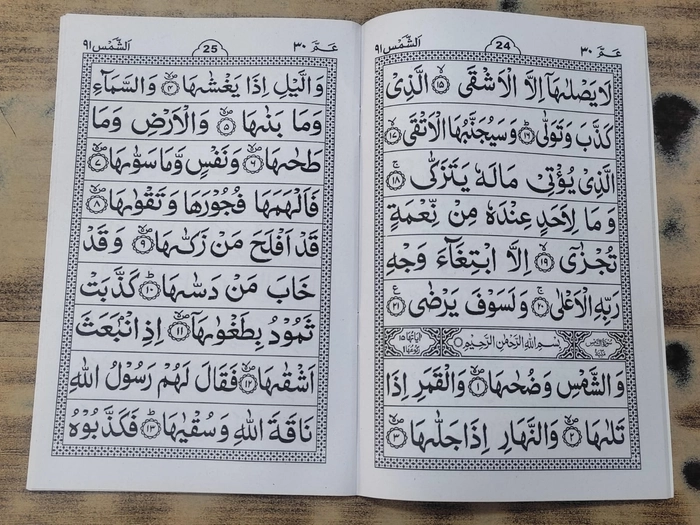 عم ٣٠
24
الشمس ٩١
لَا يَصْلٰىهَاۤ اِلَّا الْاَشْقَى ۙ﴿١٥﴾ الَّذِىْ
كَذَّبَ وَتَوَلّٰى ؕ﴿١٦﴾ وَسَيُجَنَّبُهَا الْاَتْقَى ۙ﴿١٧﴾
الَّذِىْ يُؤْتِىْ مَالَهٗ يَتَزَكّٰى ۚ﴿١٨﴾
وَمَا لِاَحَدٍ عِنْدَهٗ مِنْ نِّعْمَةٍ
تُجْزٰٓى ۙ﴿١٩﴾ اِلَّا ابْتِغَآءَ وَجْهِ
رَبِّهِ الْاَعْلٰى ۚ﴿٢٠﴾ وَلَسَوْفَ يَرْضٰى ﴿٢١﴾
بِسْمِ اللّٰهِ الرَّحْمٰنِ الرَّحِيْمِ اٰيَاتُهَا ١٥
وَالشَّمْسِ وَضُحٰىهَا ۙ﴿١﴾ وَالْقَمَرِ اِذَا
تَلٰىهَا ۙ﴿٢﴾ وَالنَّهَارِ اِذَا جَلّٰىهَا ۙ﴿٣﴾
عم ٣٠
25
الشمس ٩١
وَالَّيْلِ اِذَا يَغْشٰىهَا ۙ﴿٤﴾ وَالسَّمَآءِ
وَمَا بَنٰىهَا ۙ﴿٥﴾ وَالْاَرْضِ وَمَا
طَحٰىهَا ۙ﴿٦﴾ وَنَفْسٍ وَّمَا سَوّٰىهَا ۙ﴿٧﴾
فَاَلْهَمَهَا فُجُوْرَهَا وَتَقْوٰىهَا ۙ﴿٨﴾
قَدْ اَفْلَحَ مَنْ زَكّٰىهَا ۙ﴿٩﴾ وَقَدْ
خَابَ مَنْ دَسّٰىهَا ؕ﴿١٠﴾ كَذَّبَتْ
ثَمُوْدُ بِطَغْوٰىهَاۤ ۙ﴿١١﴾ اِذِ انْۢبَعَثَ
اَشْقٰىهَا ۙ﴿١٢﴾ فَقَالَ لَهُمْ رَسُوْلُ اللّٰهِ
نَاقَةَ اللّٰهِ وَسُقْيٰهَا ؕ﴿١٣﴾ فَكَذَّبُوْهُ